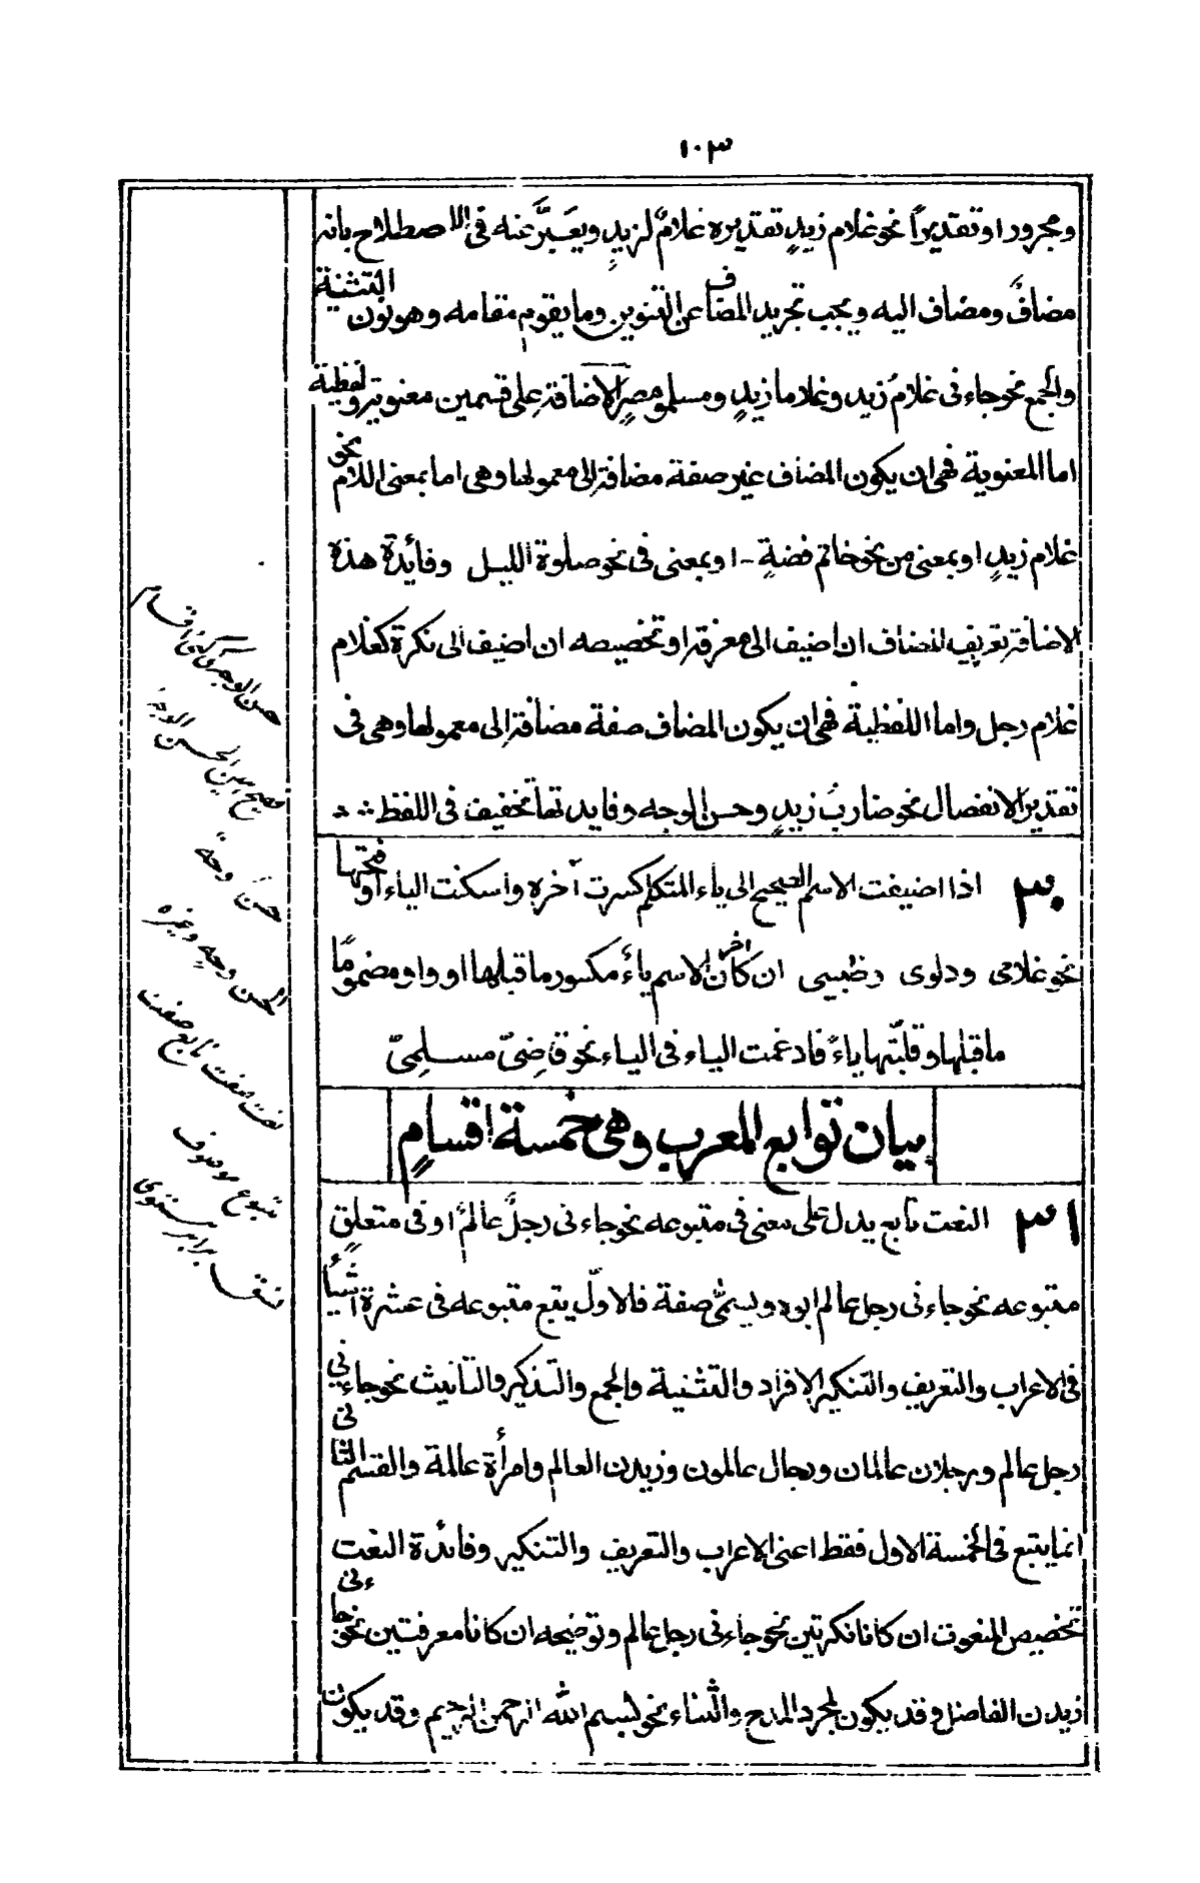 ١٠٣
ومجرور او تقديراً نحو غلام زيدٍ تقديره غلامٌ لزيدٍ ويعَبَّر عنه فى الاصطلاح بانه
مضافٌ ومضاف اليه ويجب تجريد المضاف عن التنوين وما يقوم مقامه وهو نون التثنية
والجمع نحو جاءنى غلامُ زيد وغلاما زيدٍ ومسلمو مصرٍ الاضافة على قسمين معنوية ولفظية
اما المعنوية فهى ان يكون المضاف غير صفة مضافة الى معمولها وهى اما بمعنى اللام نحو
غلام زيدٍ او بمعنى من نحو خاتم فضةٍ - او بمعنى فى نحو صلوة الليل وفائدة هذه
الاضافة تعريف المضاف ان اضيف الى معرفة او تخصيصه ان اضيف الى نكرة كغلام
غلام رجل واما اللفظية فهى ان يكون المضاف صفة مضافة الى معمولها وهى فى
تقدير الانفصال نحو ضاربُ زيدٍ وحسن الوجه وفايدتها تخفيف فى اللفظ
٣٠ اذا اضيفت الاسم الصحيح الى ياء المتكلم كسرت آخره واسكنت الياء او فتحتها
نحو غلامى ودلوى وظبيى ان كان آخر الاسم ياءً مكسور ما قبلها او واو مضمومًا
ما قبلها وقلبّتها ياءً فادغمت الياء فى الياء نحو قاضِىّ مسلمِىّ
بيان توابع المعرب وهى خمسة اقسامٍ
٣١ النعت تابع يدل على معنى فى متبوعه نحو جاءنى رجلٌ عالمٌ او فى متعلقٍ
متبوعه نحو جاءنى رجل عالم ابوه ويسمّٰى صفة فالاوّل يتبع متبوعه فى عشرة اشياءٍ
فى الاعراب والتعريف والتنكير الافراد والتثنية والجمع والتذكير والتانيث نحو جاءنى
رجل عالم ورجلان عالمان ورجال عالمون وزيدن العالم وامرأة عالمة والقسم الثانى
انما يتبع فى الخمسة الاول فقط اعنى الاعراب والتعريف والتنكير وفائدة النعت
تخصيص المنعوت ان كانا نكرتين نحو جاءنى رجل عالم وتوضيحه ان كانا معرفتين نحو جاءنى
زيدن الفاضل وقد يكون لمجرد المدح والثناء نحو بسم الله الرحمن الرحيم وقد يكون
حسن الوجہ کی کئی اقسام
الحسن الوجہ
حسنٌ وجهٌ
الحسن وجهٍ وغیره
نعت صفت تابع صفت
متبوع موصوف
نسق برابر مستوی